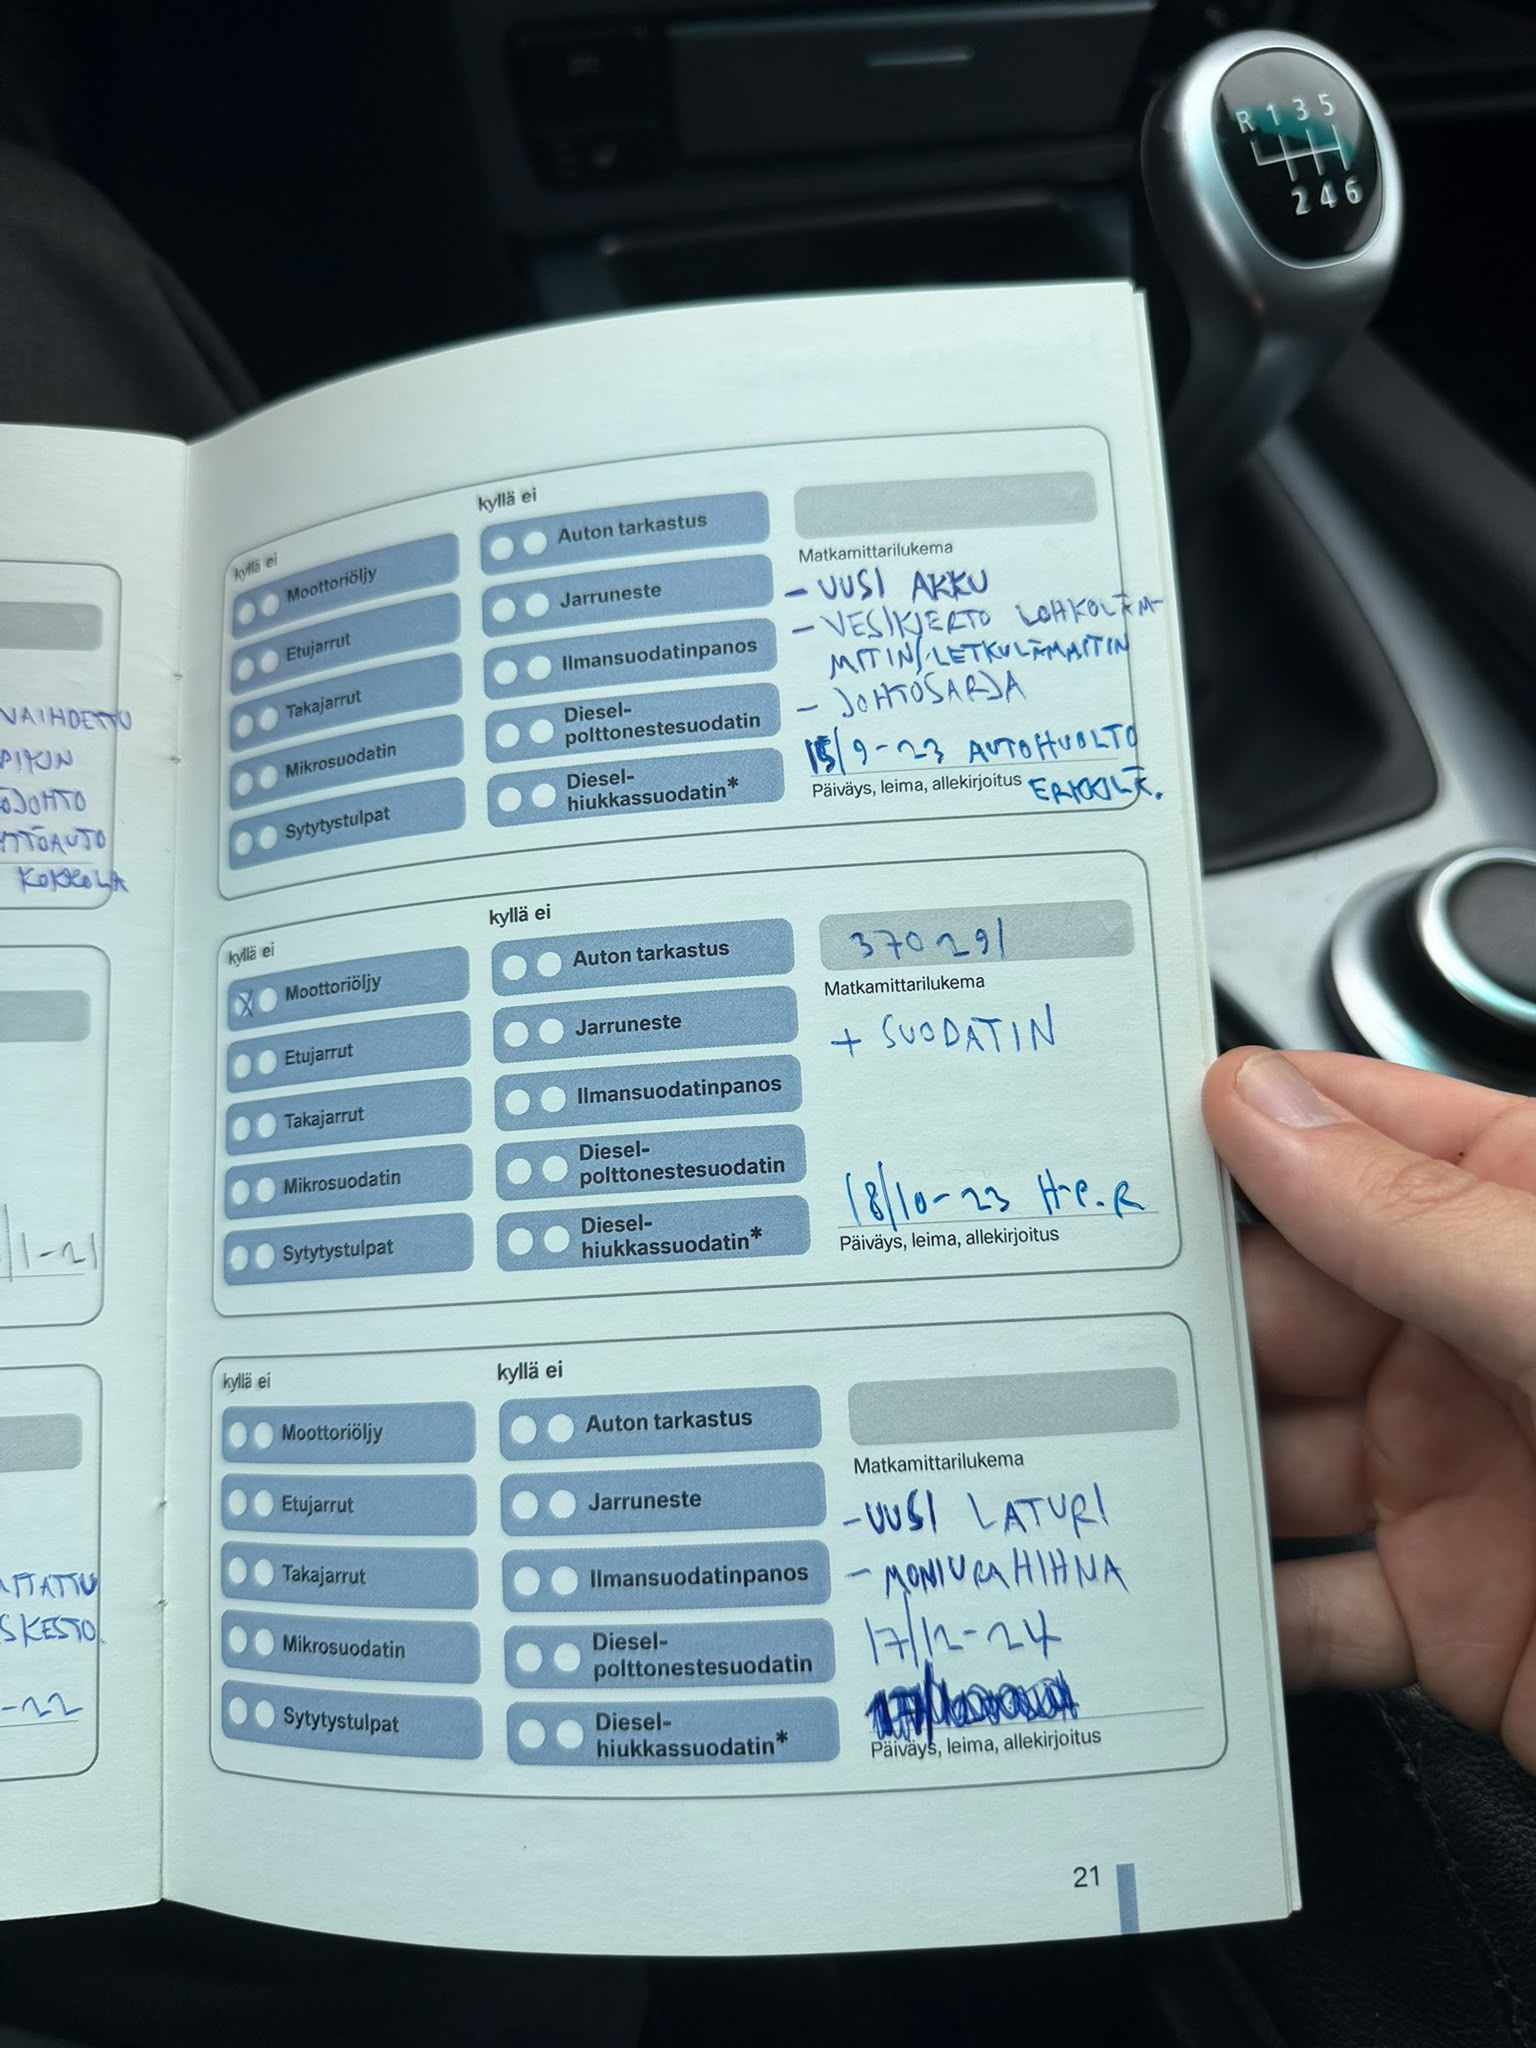 R 1 3 5
2 4 6
VAIHDETTU
KOKKOLA
1-21
SKESTO.
-22
kyllä ei
Moottoriöljy
Etujarrut
Takajarrut
Mikrosuodatin
Sytytystulpat
kyllä ei
Auton tarkastus
Jarruneste
Ilmansuodatinpanos
Diesel-
polttonestesuodatin
Diesel-
hiukkassuodatin*
Matkamittarilukema
- UUSI AKKU
- VESIKIERTO LOHKOLÄM-
MITIN/LETKULÄMMITIN
- JOHTOSARJA
15/9-23 AUTOHUOLTO
ERKKILÄ.
Päiväys, leima, allekirjoitus
kyllä ei
X Moottoriöljy
Etujarrut
Takajarrut
Mikrosuodatin
Sytytystulpat
kyllä ei
Auton tarkastus
Jarruneste
Ilmansuodatinpanos
Diesel-
polttonestesuodatin
Diesel-
hiukkassuodatin*
370291
Matkamittarilukema
+ SUODATIN
18/10-23 H-P.R
Päiväys, leima, allekirjoitus
kyllä ei
Moottoriöljy
Etujarrut
Takajarrut
Mikrosuodatin
Sytytystulpat
kyllä ei
Auton tarkastus
Jarruneste
Ilmansuodatinpanos
Diesel-
polttonestesuodatin
Diesel-
hiukkassuodatin*
Matkamittarilukema
- UUSI LATURI
- MONIURAHIHNA
17/12-24
Päiväys, leima, allekirjoitus
21